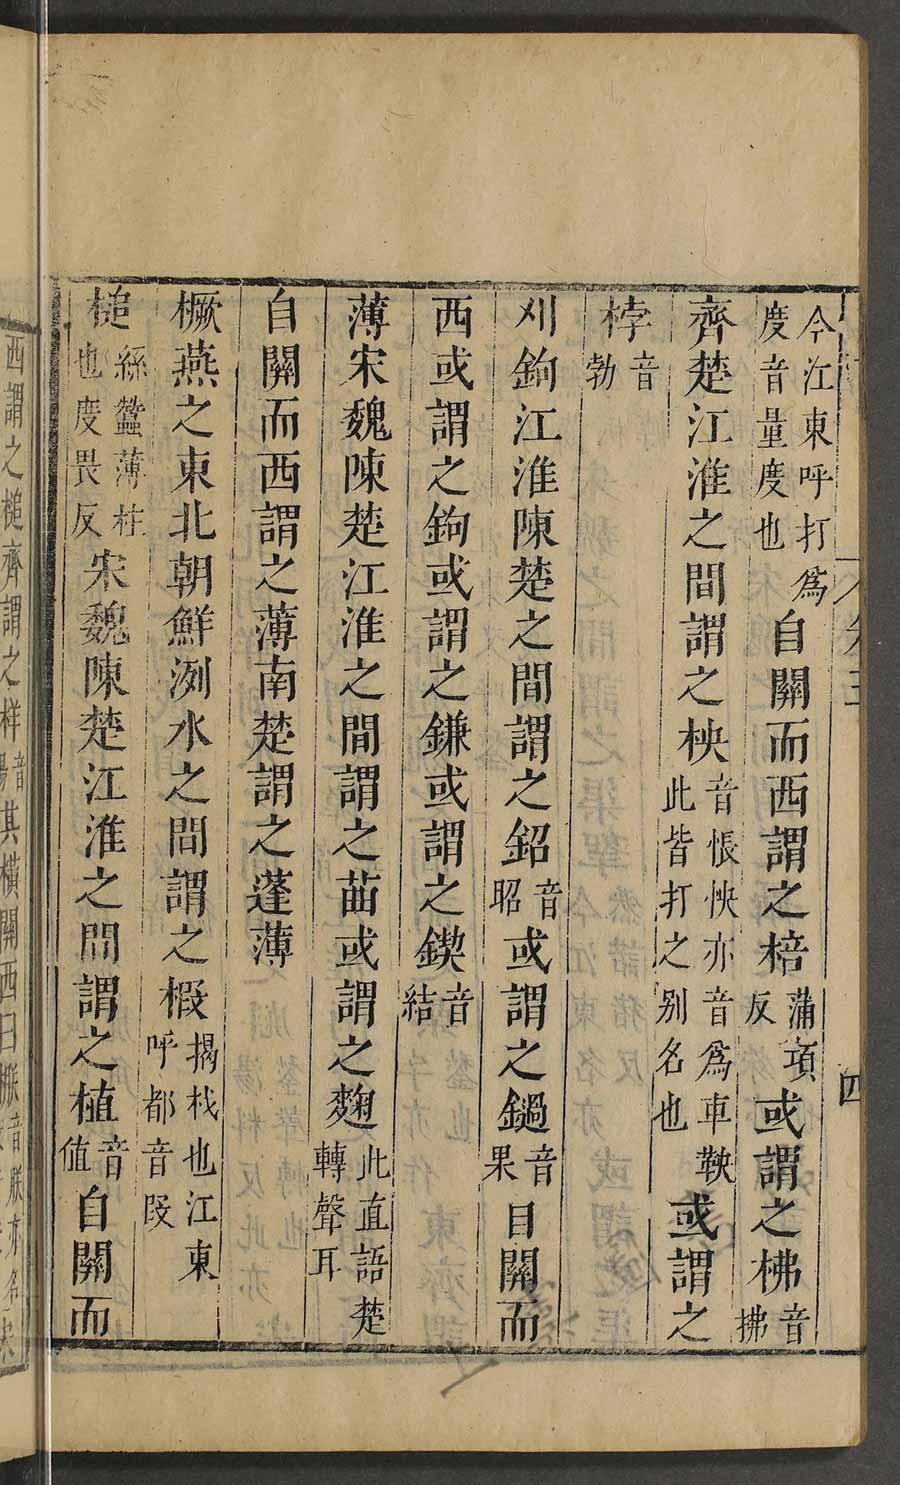 今江東呼打爲度音量度也自關而西謂之棓蒲項反或謂之柫音拂
齊楚江淮之間謂之柍音悵怏亦音爲車鞅此皆打之别名也或謂之
桲音勃
刈鉤江淮陳楚之間謂之鉊音昭或謂之鐹音果目關而
西或謂之鉤或謂之鎌或謂之鍥音結
薄宋魏陳楚江淮之間謂之苖或謂之麴此直語楚轉聲耳
自關而西謂之薄南楚謂之蓬薄
橛燕之東北朝鮮洌水之間謂之椵揭杙也江東呼都音段
槌絲蠶薄柱也度畏反宋魏陳楚江淮之間謂之植音值自關而
西謂之槌齊謂之样音陽其橫關西曰㮳音朕亦名
四